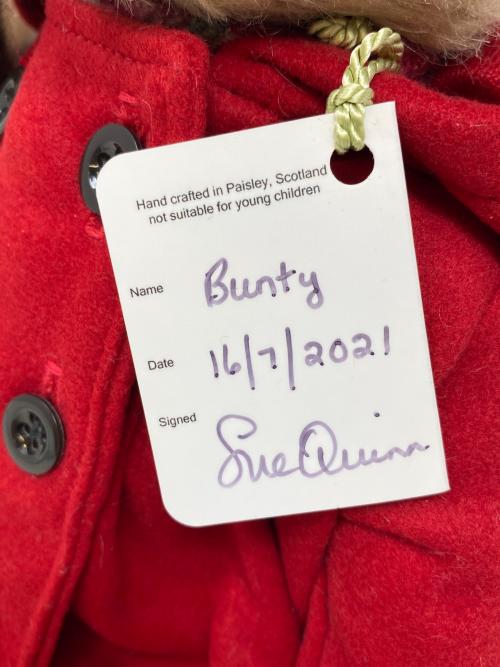 Hand crafted in Paisley, Scotland
not suitable for young children
Name Bunty
Date 16/7/2021
Signed Sue Quinn